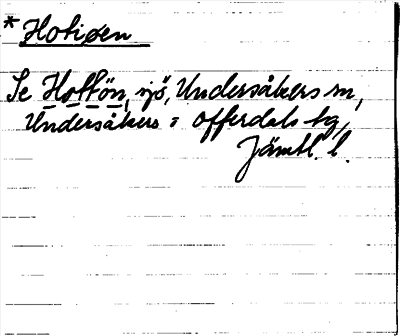 * Hotiøen
Se Hottön, sjö, Undersåkers sn,
Undersåkers = Offerdals tg,
Jämtl. l.